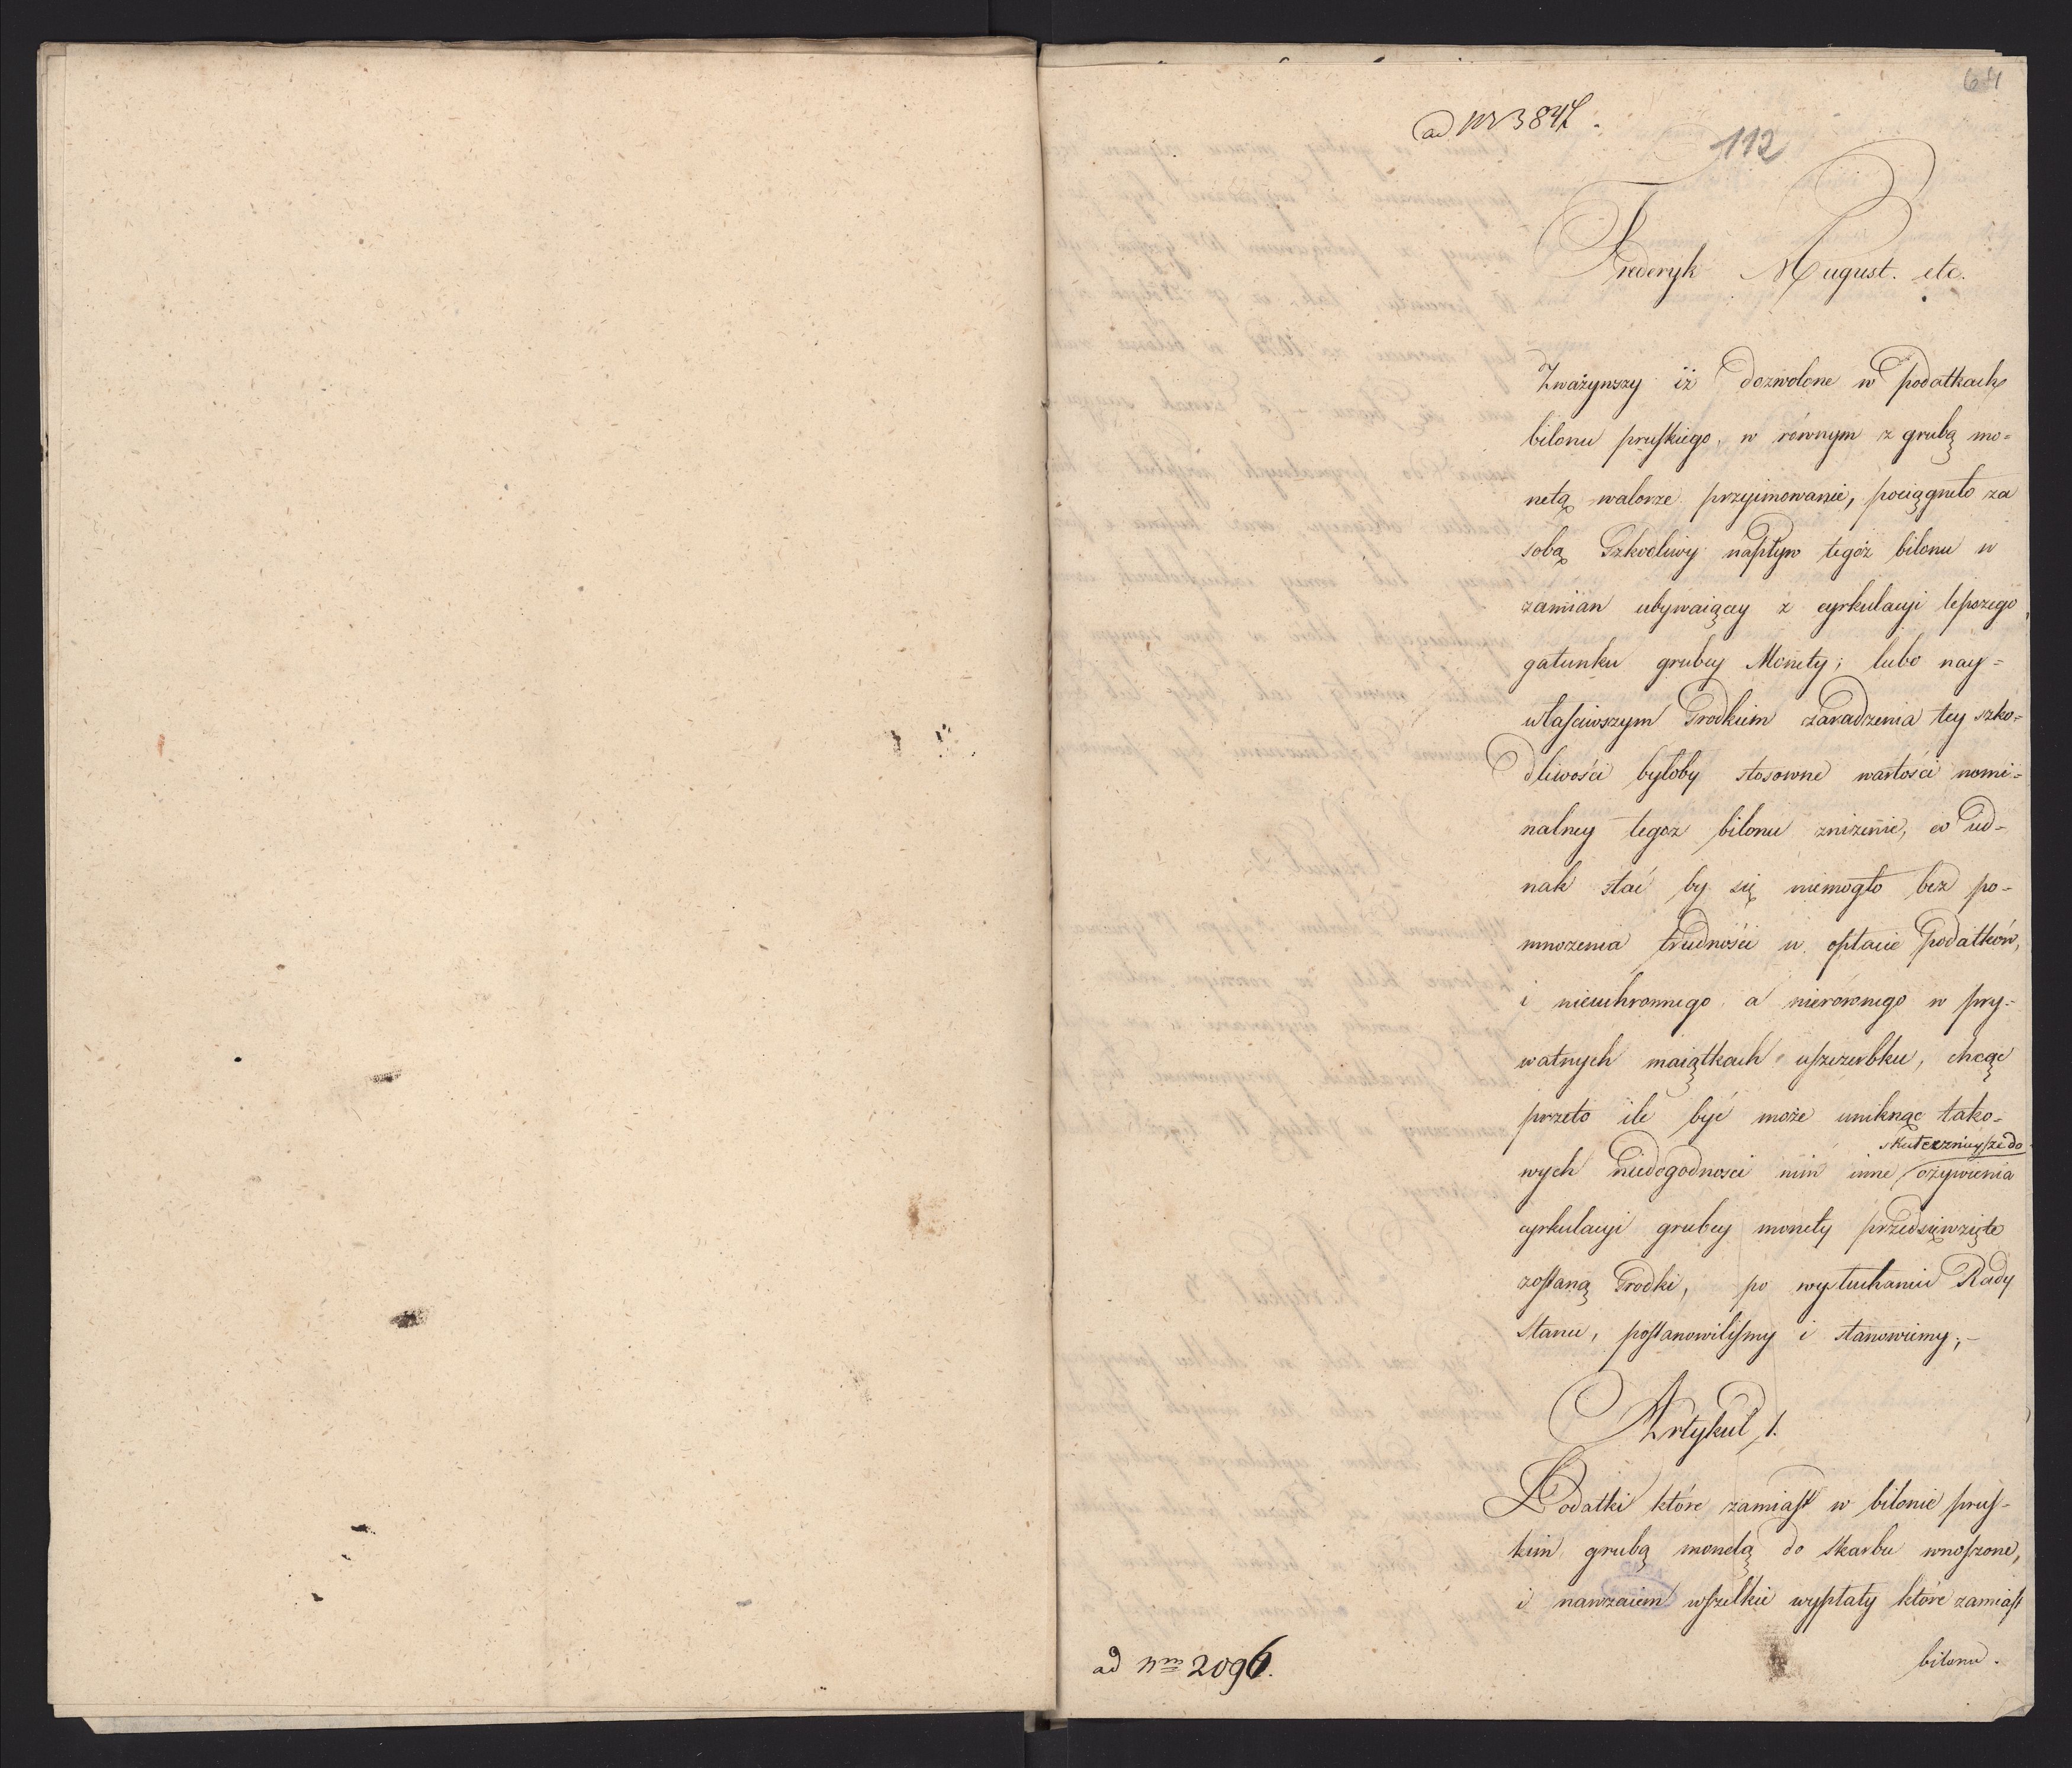 64
ad Nr 3847.
112
Frederyk August. etc.
Zważywszy iż dozwolone w podatkach
bilonu pruskiego, w równym z grubą mo-
netą walorze przyimowanie, pociągnęło za
sobą szkodliwy napływ tegóż bilonu w
zamian ubywaiącey z cyrkulacyi lepszego
gatunku grubey Monety; lubo nay-
właściwszym srodkiem zaradzenia tey szko-
dliwości byłoby stosowne wartości nomi-
nalney tegoż bilonu zniżenie, co ied-
nak stać by się niemogło bez po-
mnożenia trudności w opłacie podatków,
i nieuchronnego a nierównego w pry-
watnych maiątkach uszczerbku, chcąc
przeto ile być może uniknąc tako-
skutecznieysze do
wych niedogodności nim inne ożywienia
cyrkulacyi grubey monety przedsięwzięte
zostaną srodki, po wysłuchaniu Rady
Stanu, postanowiliśmy i stanowiemy;-
Artykuł 1.
Podatki które zamiast w bilonie prus-
kim grubą monetą do skarbu wnoszone,
i nawzaiem wszelkie wypłaty które zamiast
bilonu.
ad Nrm 2096.